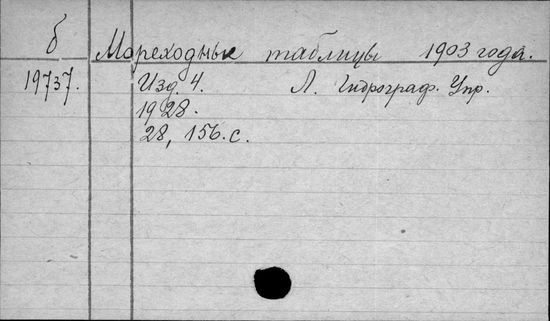 б Мореходные таблицы 1903 года.
19737. Изд. 4. Л. Гидрограф. Упр.
1928.
28, 156. с.